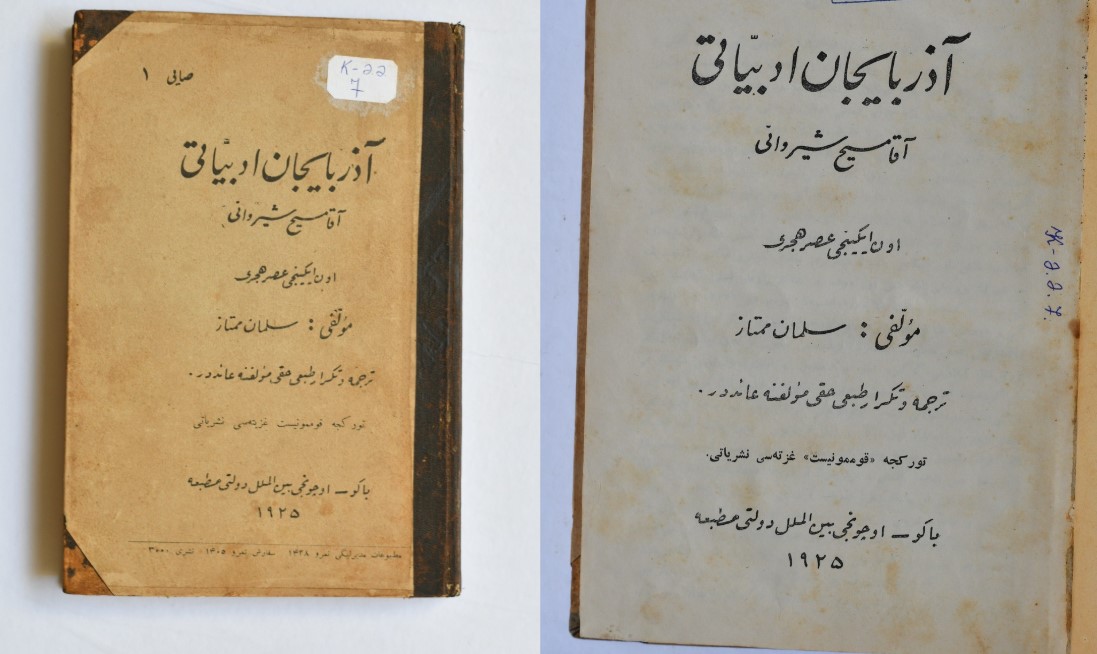 صایی ۱
K-22
7
آذربایجان ادبیّاتی
آقا مسیح شیروانی
اون ایکینجی عصر هجری
مؤلّفی : سلمان ممتاز
ترجمه و تکرار طبعی حقی مؤلفنه عاندر.
تورکجه قوممونیست غزیته‌سی نشریاتی
باکو ــ اوچونجی بین الملل دولتی مطبعه
۱۹۲۵
مطبوعات مدیرلیگی نمرو ۱۴۳۸ سفارش نمرو ۱۴۰۵ نشری ۳۰۰۰
آذربایجان ادبیّاتی
آقا مسیح شیروانی
اون ایکینجی عصر هجری
مؤلّفی : سلمان ممتاز
ترجمه و تکرار طبعی حقی مؤلفنه عاندر.
تورکجه «قوممونیست» غزته‌سی نشریاتی.
باکو ــ اوچونجی بین الملل دولتی مطبعه
۱۹۲۵